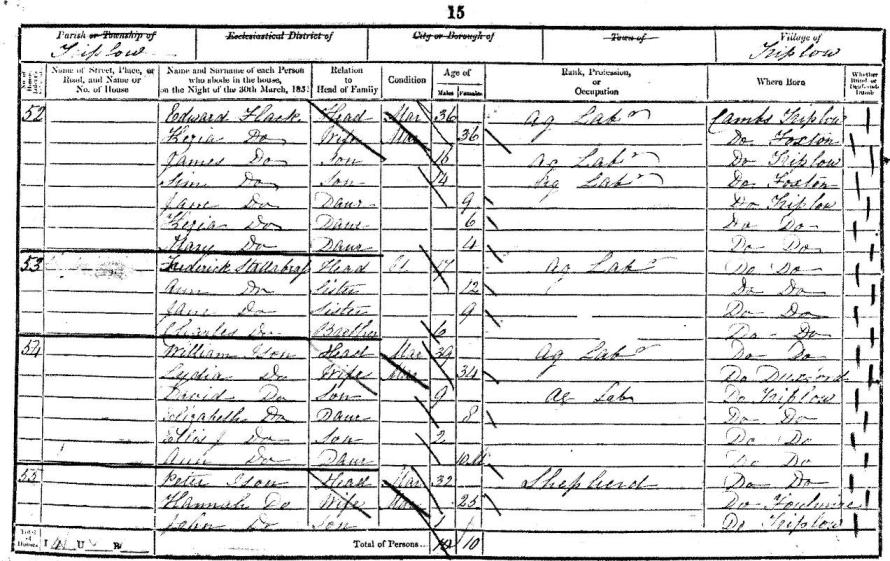 15
Parish or Township of Ecclesiastical District of City or Borough of Town of Village of
Triplow Triplow
Name of Street, Place, or Road, and Name or No. of House Name and Surname of each Person who abode in the house, on the Night of the 30th March, 1851 Relation to Head of Family Condition Age of Males Females Rank, Profession, or Occupation Where Born Whether Blind or Deaf-and-Dumb
52 Edward Flack Head Mar 36 Ag Labr Cambs Triplow
Kezia Do Wife Mar 36 Do Foxton
James Do Son 16 Ag Labr Do Triplow
Sim Do Son 14 Ag Labr Do Foxton
Jane Do Daur 9 Do Triplow
Kezia Do Daur 6 Do Do
Mary Do Daur 4 Do Do
53 Frederick Stallabras Head 17 Ag Labr Do Do
Ann Do Sister 12 Do Do
Jane Do Sister 9 Do Do
Charles Do Brother 6 Do Do
54 William Ison Head Mar 39 Ag Labr Do Do
Lydia Do Wife Mar 34 Do Duxford
David Do Son 9 Ag Lab Do Triplow
Elizabeth Do Daur 8 Do Do
Ellis J Do Son 2 Do Do
Ann Do Daur Do Do
55 Peter Ison Head Mar 32 Shepherd Do Do
Hannah Do Wife Mar 25 Do Foulmire
John Do Son 1 Do Triplow
Total of Houses I 4 U B Total of Persons 10 10